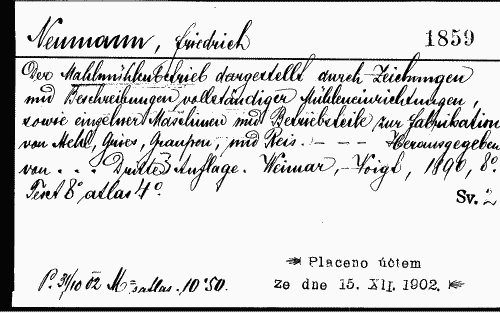 Neumann, Friedrich 1859
Der Mahlmühlenbetrieb dargestellt durch Zeichnungen
und Beschreibungen vollständiger Mühleneinrichtungen,
sowie einzelner Maschinen und Betriebsteile zur Fabrikation
von Mehl, Gries, Graupen, und Reis. - - - Herausgegeben
von . . . Dritte Auflage. Weimar, Voigt, 1890, 8°.
Text 8° atlas 4°. Sv. 2
➳ Placeno účtem
P. 31/10 02 M= s atlas. 10·50. ze dne 15. XII. 1902.